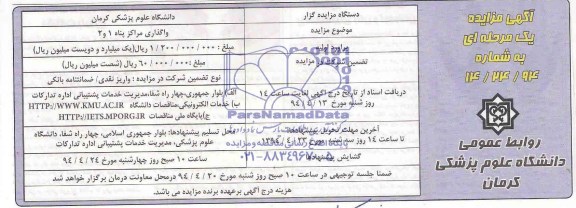 آگهی مزایده
یک مرحله ای
به شماره
۹۴ / ۲۴ / ۱۴
روابط عمومی
دانشگاه علوم پزشکی
کرمان
دستگاه مزایده گزار
دانشگاه علوم پزشکی کرمان
موضوع مزایده
واگذاری مراکز پناه ۱ و ۲
برآورد اولیه
مبلغ : ۱/۲۰۰/۰۰۰/۰۰۰ ریال(یک میلیارد و دویست میلیون ریال)
تضمین شرکت در مزایده
مبلغ : ۶۰/۰۰۰/۰۰۰ ریال (شصت میلیون ریال)
نوع تضمین شرکت در مزایده : واریز نقدی/ ضمانتنامه بانکی
دریافت اسناد از تاریخ درج آگهی لغایت ساعت ۱۴
روز شنبه مورخ ۹۴/۴/۱۳
الف) بلوار جمهوری-چهار راه شفا،مدیریت خدمات پشتیبانی اداره تدارکات
ب) خدمات الکترونیکی،مناقصات دانشگاه HTTP://WWW.KMU.AC.IR
ج)پایگاه ملی مناقصات HTTP://IETS.MPORG.IR
آخرین مهلت تحویل پیشنهادها
تا ساعت ۱۴ روز سه شنبه مورخ ۱۳۹۴/۴/۲۳
محل تسلیم پیشنهادها: بلوار جمهوری اسلامی، چهار راه شفا، دانشگاه
علوم پزشکی، مدیریت خدمات پشتیبانی اداره تدارکات
گشایش پیشنهادها
ساعت ۱۰ صبح روز چهارشنبه مورخ ۹۴/۴/۲۴
ضمنا جلسه توجیهی در ساعت ۱۰ صبح روز شنبه مورخ ۹۴/۴/۲۰ درمحل معاونت درمان برگزار خواهد شد
هزینه درج آگهی برعهده برنده مزایده می باشد.
ParsNamadData
۰۲۱-۸۸۳۴۹۶۷۰-۵